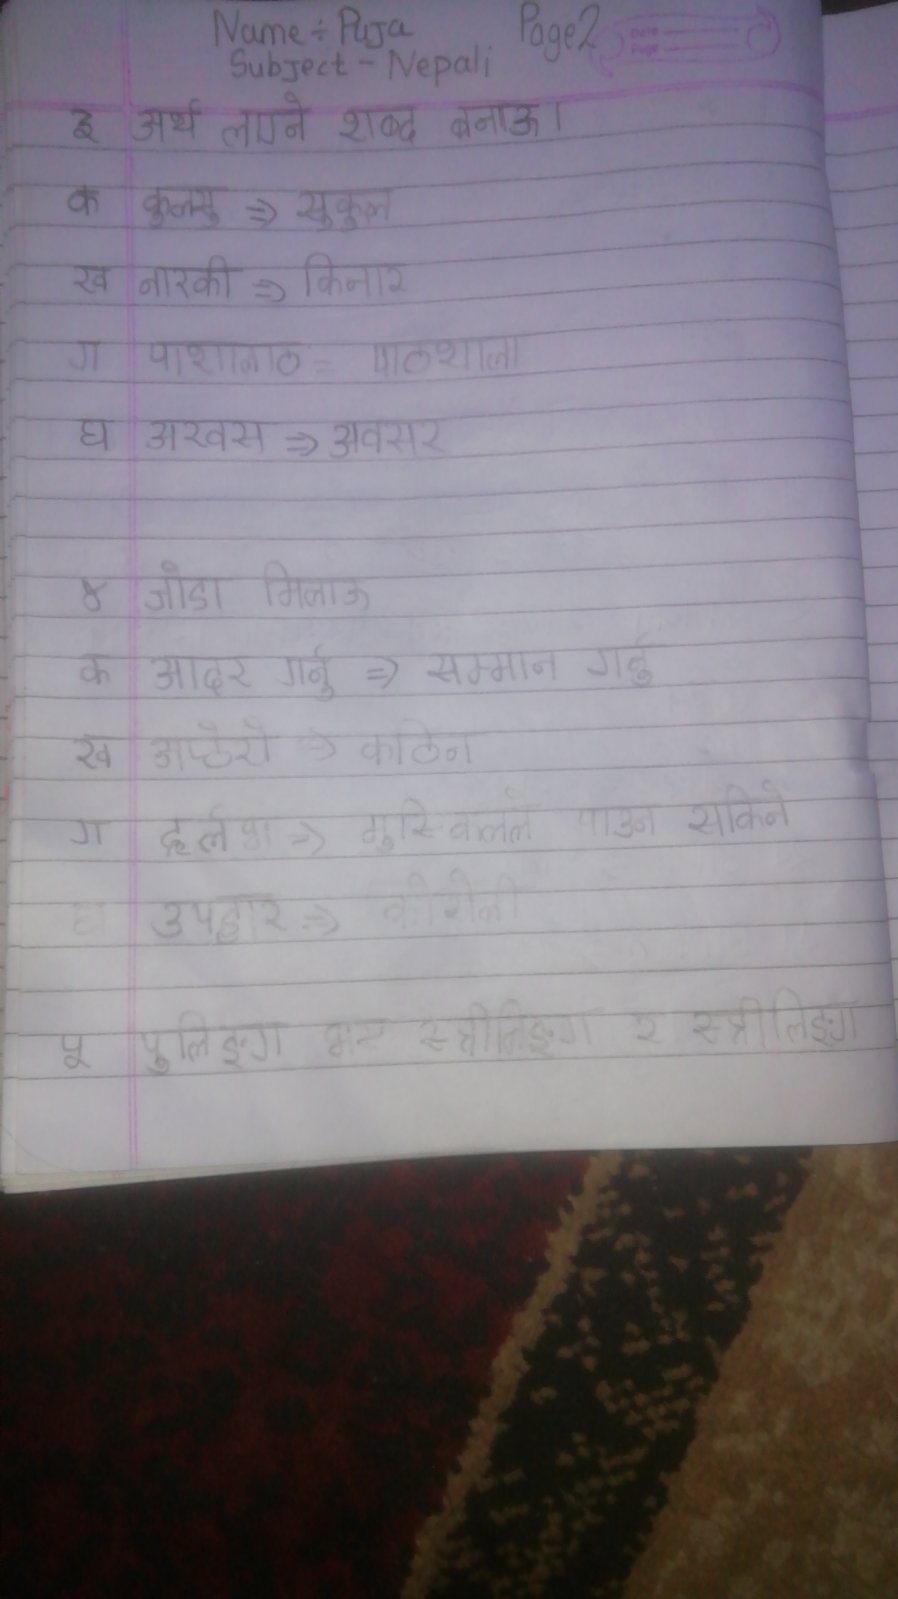 Name ÷ Puja Page 2
Subject - Nepali
Date
Page
३ अर्थ लाग्ने शब्द बनाऊ।
क कुलसु ⇒ सुकुल
ख नारकी ⇒ किनार
ग पाशालाठ = पाठशाला
घ अरवस ⇒ अवसर
४ जोडा मिलाऊ
क आदर गर्नु ⇒ सम्मान गर्नु
ख अप्ठेरो ⇒ कठिन
ग दुर्लभ ⇒ मुस्किलले पाउन सकिने
घ उपहार ⇒ कोशेली
५ पुलिङ्ग भए स्त्रीलिङ्ग र स्त्रीलिङ्ग